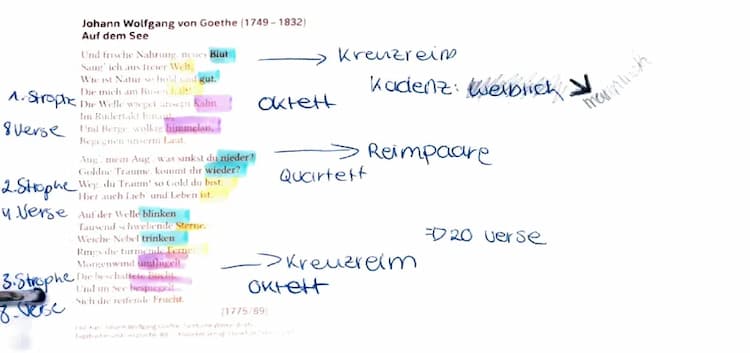 Johann Wolfgang von Goethe (1749 – 1832)
Auf dem See
Und frische Nahrung, neues Blut
Saug' ich aus freier Welt;
Wie ist Natur so hold und gut,
Die mich am Busen hält!
Die Welle wieget unsern Kahn
Im Rudertakt hinauf,
Und Berge, wolkig himmelan,
Begegnen unserm Lauf.
Aug', mein Aug', was sinkst du nieder?
Goldne Träume, kommt ihr wieder?
Weg, du Traum! so Gold du bist:
Hier auch Lieb' und Leben ist.
Auf der Welle blinken
Tausend schwebende Sterne,
Weiche Nebel trinken
Rings die türmende Ferne;
Morgenwind umflügelt
Die beschattete Bucht,
Und im See bespiegelt
Sich die reifende Frucht.
(1775/89)
1. Strophe
8 Verse
2. Strophe
4. Verse
3. Strophe
8. Verse
Kreuzreim
Kadenz: weiblich
männlich
Oktett
Reimpaare
Quartett
⇒ 20 Verse
Kreuzreim
Oktett